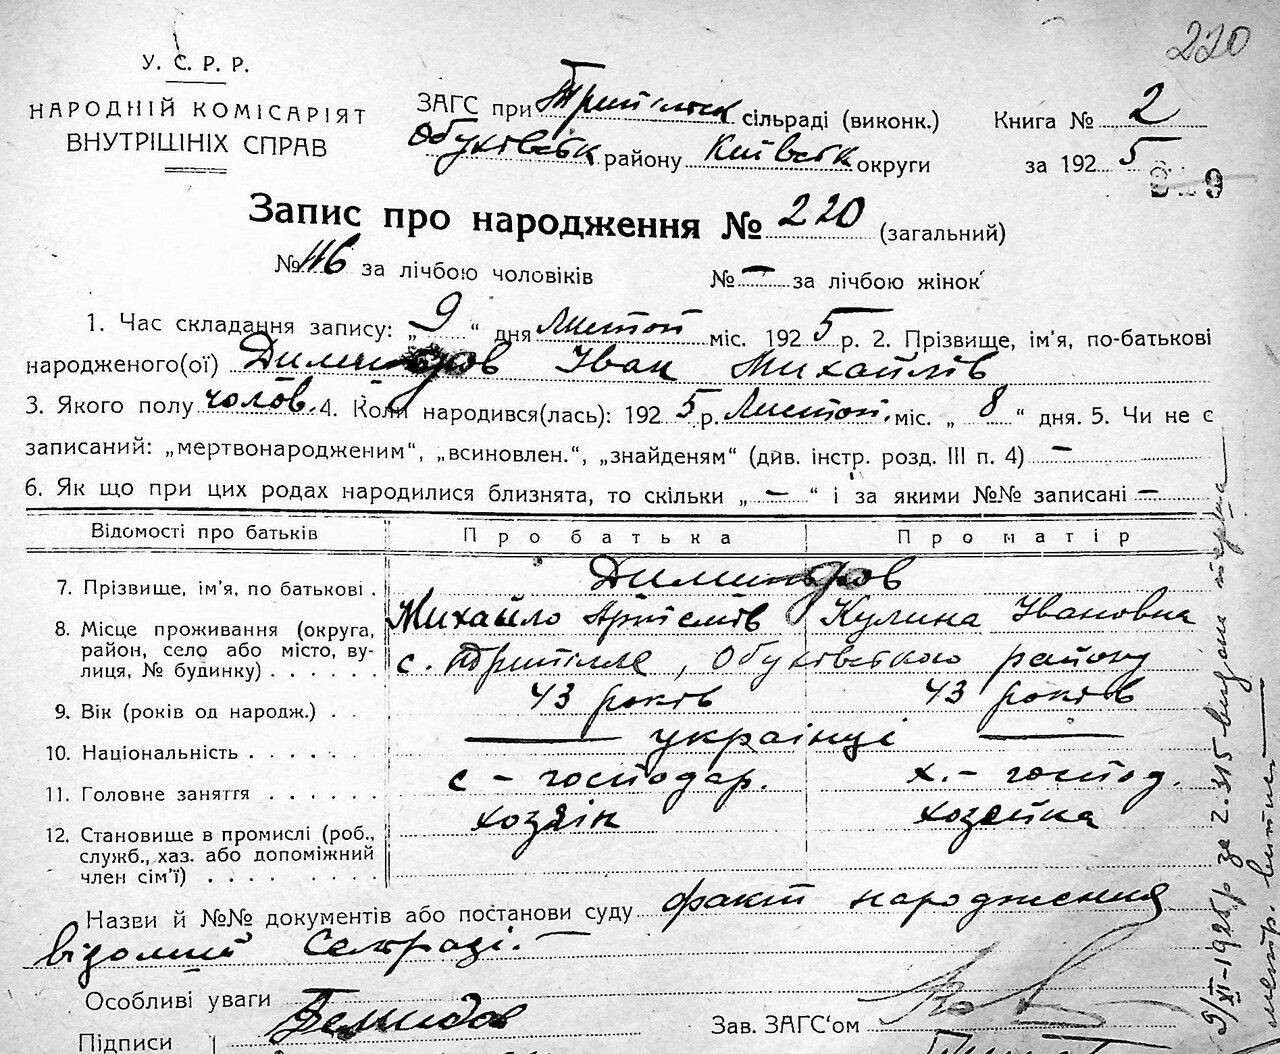 220
У. С. Р. Р.
НАРОДНІЙ КОМІСАРІЯТ
ВНУТРІШНІХ СПРАВ
ЗАГС при Трипільск сільраді (виконк.)
Обухівськ району Київськ округи
Книга № 2
за 192 5
Запис про народження № 220 (загальний)
№ 116 за лічбою чоловіків № — за лічбою жінок
1. Час складання запису: „ 9 “ дня Листоп міс. 192 5 р. 2. Прізвище, ім'я, по-батькові
народженого(ої) Іван Михайлів
3. Якого полу чолов. 4. Коли народився(лась): 192 5 р. Листоп. міс. „ 8 “ дня. 5. Чи не є
записаний: „мертвонародженим“, „всиновлен.“, „знайденям“ (див. інстр. розд. III п. 4) —
6. Як що при цих родах народилися близнята, то скільки „ — “ і за якими №№ записані —
Відомості про батьків Про батька Про матір
7. Прізвище, ім'я, по батькові .
Михайло Артемів Кулина Івановна
8. Місце проживання (округа, район, село або місто, вулиця, № будинку) . . . . . .
с. Трипілля, Обухівського району
9. Вік (років од народж.) . . 43 років 43 років
10. Національність . . . . . . українці
11. Головне заняття . . . . . . с – господар. х. – господ.
12. Становище в промислі (роб., служб., хаз. або допоміжний член сім'ї) . . . . . . .
хозяін хозяйка
Назви й №№ документів або постанови суду факт народження
відомий Сельраді. —
Особливі уваги
Підписи Демидов Зав. ЗАГС'ом
9/XI-1925р за 2.315 видана перша